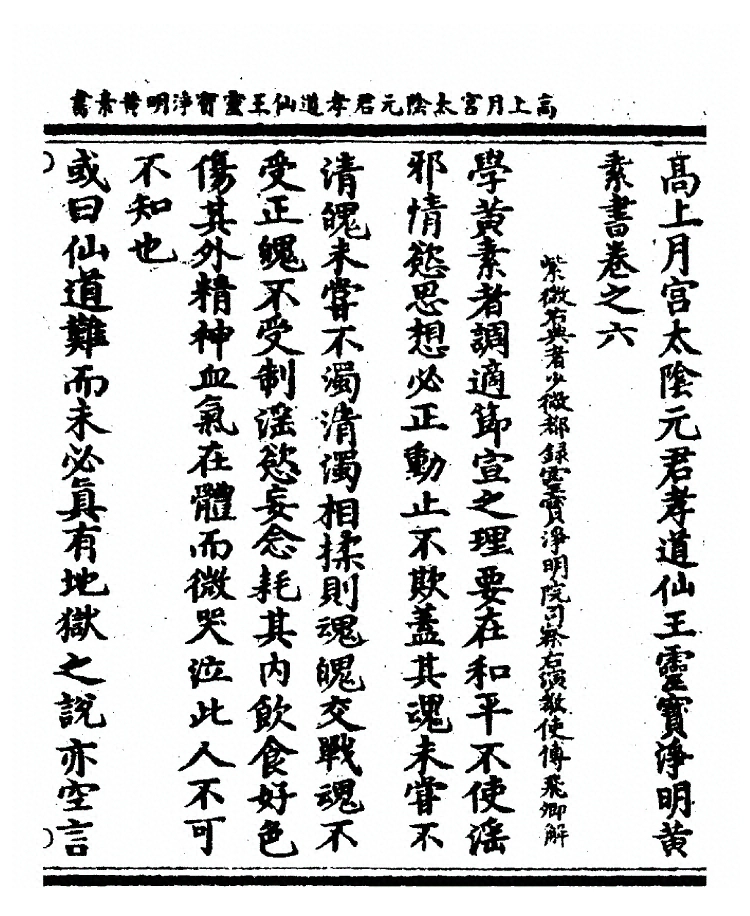 高上月宮太陰元君孝道仙王靈寶淨明黃素書
高上月宮太陰元君孝道仙王靈寶淨明黃
素書卷之六
紫微右典者少微都錄靈寶淨明院司察右演教使傅飛卿解
學黃素者調適節宣之理要在和平不使淫
邪情慾思想必正動止不欺蓋其魂未嘗不
清魄未嘗不濁清濁相揉則魂魄交戰魂不
受正魄不受制淫慾妄念耗其內飲食好色
傷其外精神血氣在體而微哭泣此人不可
不知也
或曰仙道難而未必真有地獄之說亦空言